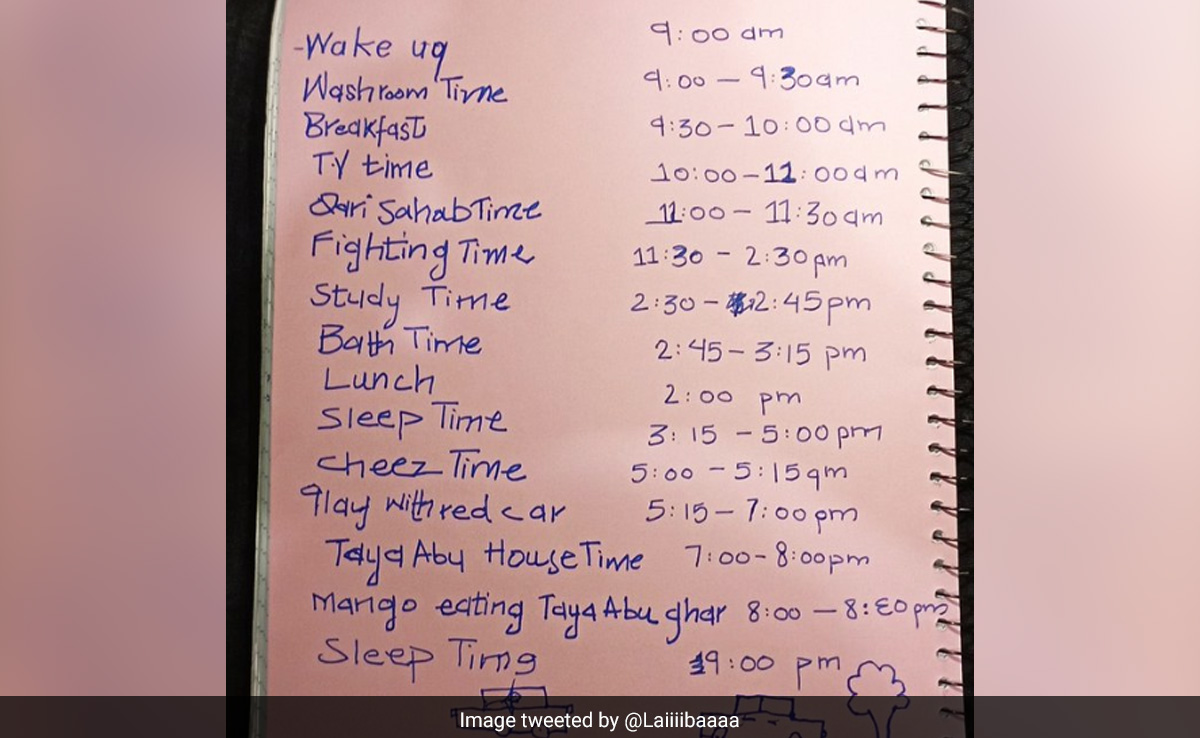 -Wake uq 9:00 am
Washroom Time 9:00 - 9:30am
Breakfast 9:30 - 10:00 am
T.V time 10:00 - 11:00am
Qari Sahab Time 11:00 - 11:30am
Fighting Time 11:30 - 2:30pm
Study Time 2:30 - 2:45pm
Bath Time 2:45 - 3:15 pm
Lunch 2:00 pm
Sleep Time 3:15 - 5:00pm
cheez Time 5:00 - 5:15qm
Play with red car 5:15 - 7:00pm
Taya Abu House Time 7:00 - 8:00pm
Mango eating Taya Abu ghar 8:00 - 8:30pm
Sleep Time 9:00 pm
Image tweeted by @Laiiiibaaaa